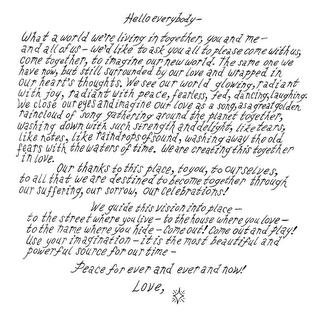 Hello everybody—
What a world we're living in together, you and me—
and all of us—we'd like to ask you all to please come with us,
come together, to imagine our new world. The same one we
have now, but still surrounded by our love and wrapped in
our heart's thoughts. We see our world glowing, radiant
with joy, radiant with peace, fearless, fed, dancing, laughing.
We close our eyes and imagine our love as a song, as a great golden
raincloud of song gathering around the planet together,
washing down with such strength and delight, like tears,
like notes, like raindrops of sound, washing away the old
fears with the waters of time. We are creating this together
in love.
Our thanks to this place, to you, to ourselves,
to all that we are destined to become together through
our suffering, our sorrow, our celebrations!
We guide this vision into place—
to the street where you live—to the house where you love—
to the name where you hide—Come out! Come out and play!
Use your imagination—it is the most beautiful and
powerful source for our time—
Peace for ever and ever and now!
Love,